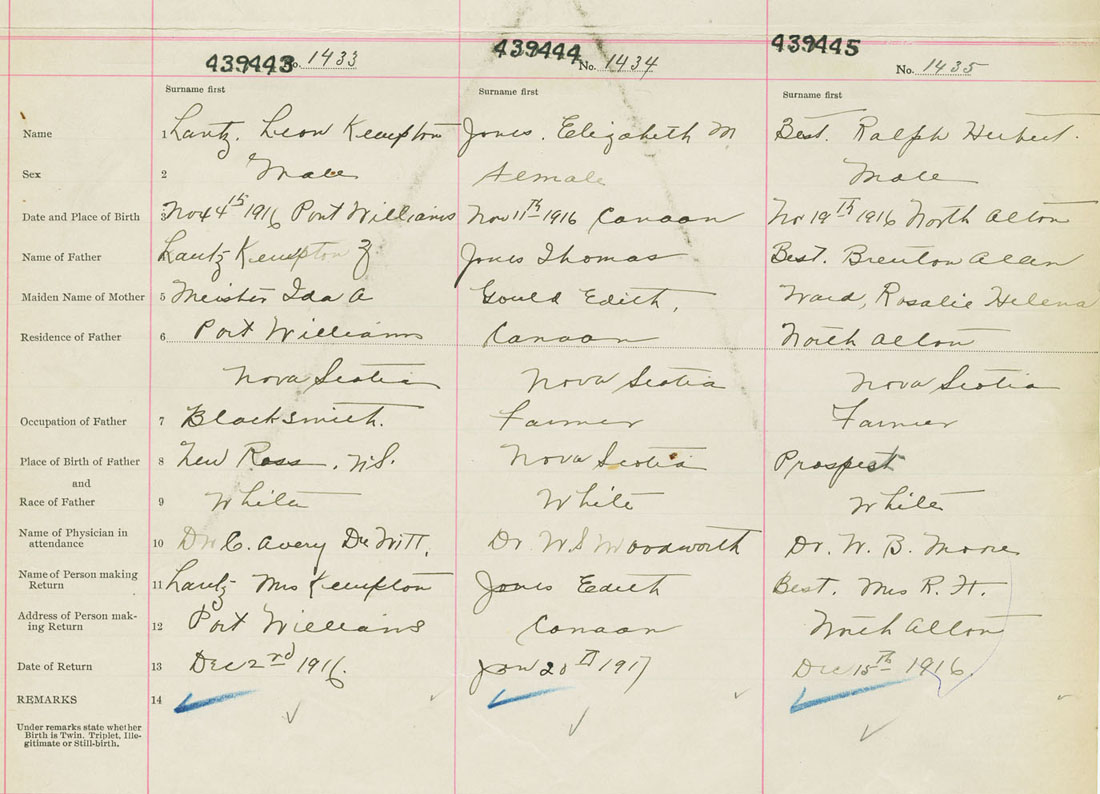 439443 No. 1433 439444 No. 1434 439445 No. 1435
Surname first Surname first Surname first
Name 1 Lantz. Leon Kempton Jones. Elizabeth M. Best. Ralph Herbert.
Sex 2 Male Female Male
Date and Place of Birth 3 Nov 4th 1916 Port Williams Nov 11th 1916 Canaan No 19th 1916 North Alton
Name of Father Lantz Kempton Z Jones Thomas Best. Brenton Allen
Maiden Name of Mother 5 Meister Ida A Gould Edith, Ward, Rosalie Helena
Residence of Father 6 Port Williams Canaan North Alton
Nova Scotia Nova Scotia Nova Scotia
Occupation of Father 7 Blacksmith. Farmer Farmer
Place of Birth of Father 8 New Ross, N.S. Nova Scotia Prospect
and
Race of Father 9 White White White
Name of Physician in
attendance 10 Dr C. Avery DeWitt. Dr. W. S Woodworth Dr. W. B. Moore
Name of Person making
Return 11 Lantz Mrs Kempton Jones Edith Best. Mrs R. H.
Address of Person mak-
ing Return 12 Port Williams Canaan North Alton
Date of Return 13 Dec 2nd 1916. Jan 20th 1917 Dec 15th 1916
REMARKS 14
Under remarks state whether
Birth is Twin. Triplet, Ille-
gitimate or Still-birth.